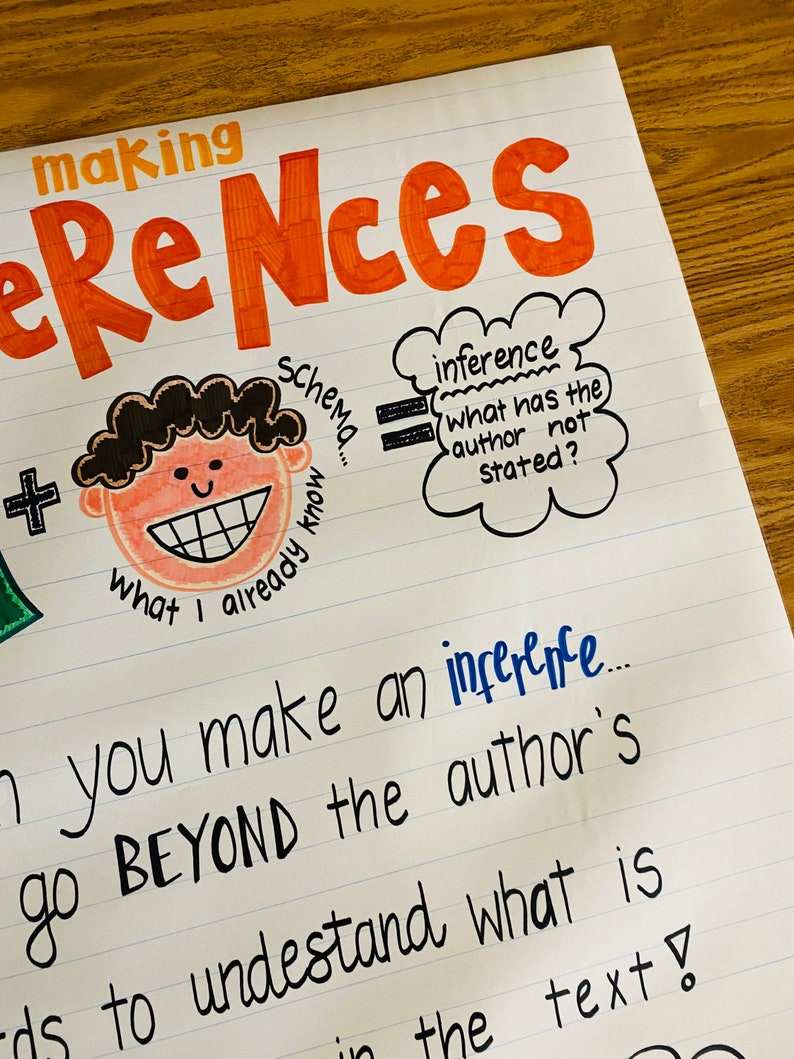 making
eReNces
schema...
inference
+
=
what has the
author not
stated?
what I already know
n you make an inference...
go BEYOND the author's
rds to understand what is
in the text!